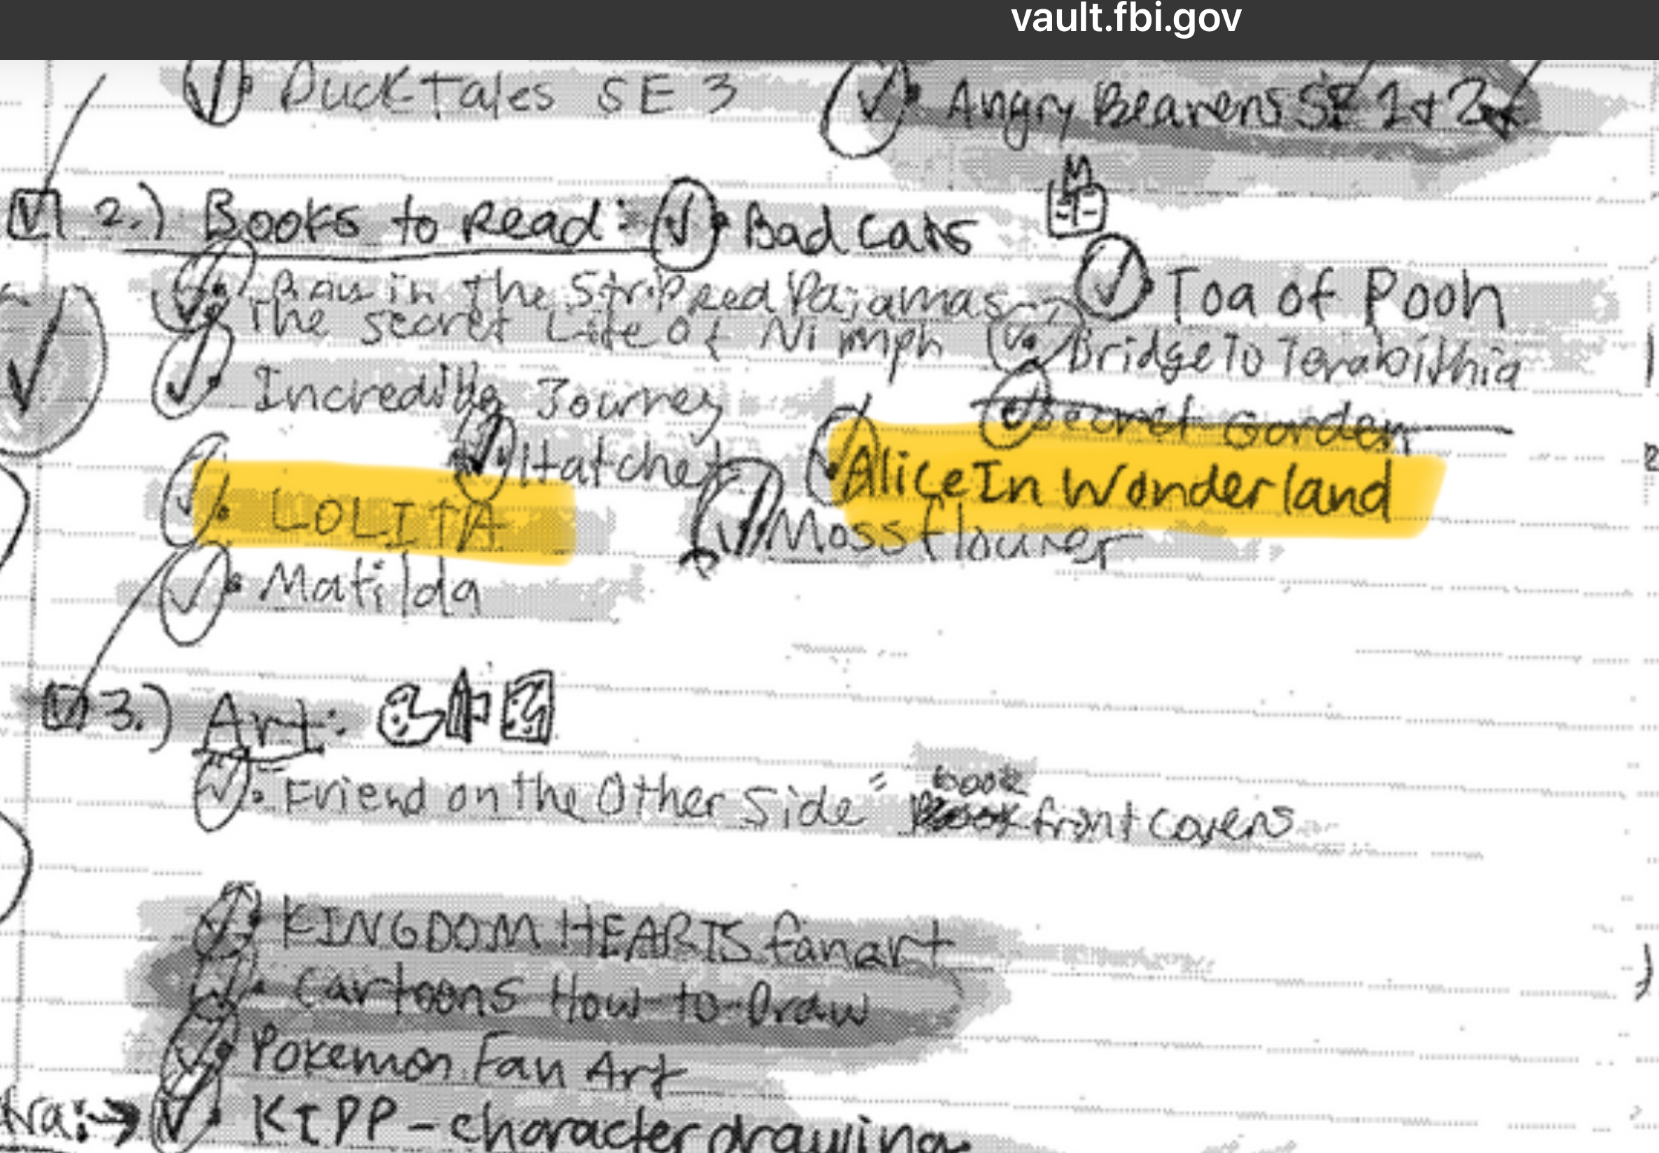 vault.fbi.gov
DuckTales SE 3
Angry Beavers SE 1 & 2
2.) Books to Read: Bad Cats
Boy in the Stripeed Pajamas
Toa of Pooh
The secret Life of Nimph
Bridge To Terabithia
Incredible Journey
Secret Garden
Hatchet
Alice In Wonderland
LOLITA
Mossflower
Matilda
3.) Art:
Friend on the Other side" book front covers
KINGDOM HEARTS fanart
Cartoons How to Draw
Pokemon Fan Art
KIPP - character drawing